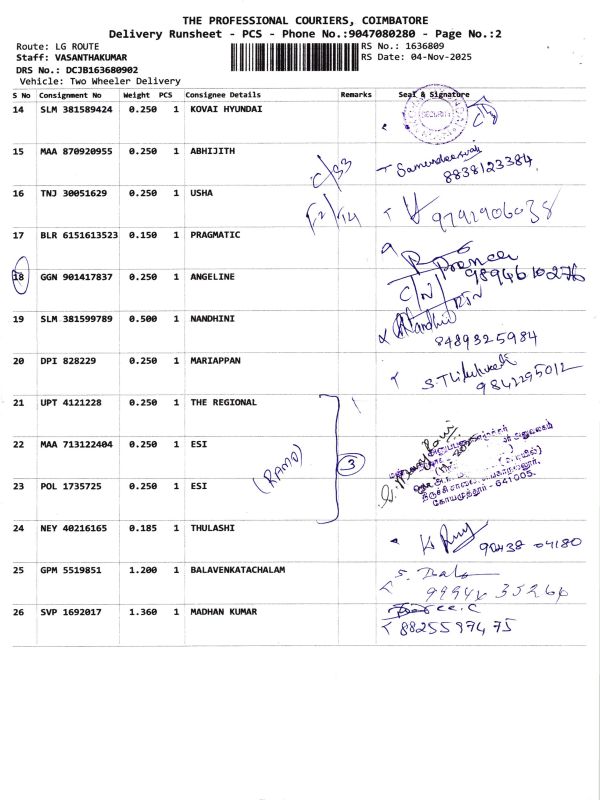 THE PROFESSIONAL COURIERS, COIMBATORE
Delivery Runsheet - PCS - Phone No.:9047080280 - Page No.:2
Route: LG ROUTE
RS No.: 1636809
Staff: VASANTHAKUMAR
RS Date: 04-Nov-2025
DRS No.: DCJB163680902
Vehicle: Two Wheeler Delivery
S No Consignment No Weight PCS Consignee Details Remarks Seal & Signature
14 SLM 381589424 0.250 1 KOVAI HYUNDAI
SECURITY
15 MAA 870920955 0.250 1 ABHIJITH
C/33
8838123384
16 TNJ 30051629 0.250 1 USHA
F2/14
9792906038
17 BLR 6151613523 0.150 1 PRAGMATIC
9894610276
18 GGN 901417837 0.250 1 ANGELINE
C/N RTN
19 SLM 381599789 0.500 1 NANDHINI
Nandhini
8489325984
20 DPI 828229 0.250 1 MARIAPPAN
9842295012
21 UPT 4121228 0.250 1 THE REGIONAL
22 MAA 713122404 0.250 1 ESI
(RAMO)
3
23 POL 1735725 0.250 1 ESI
கோயமுத்தூர் - 641005.
24 NEY 40216165 0.185 1 THULASHI
90438 04180
25 GPM 5519851 1.200 1 BALAVENKATACHALAM
S. Bala
99942 35266
26 SVP 1692017 1.360 1 MADHAN KUMAR
8825597475